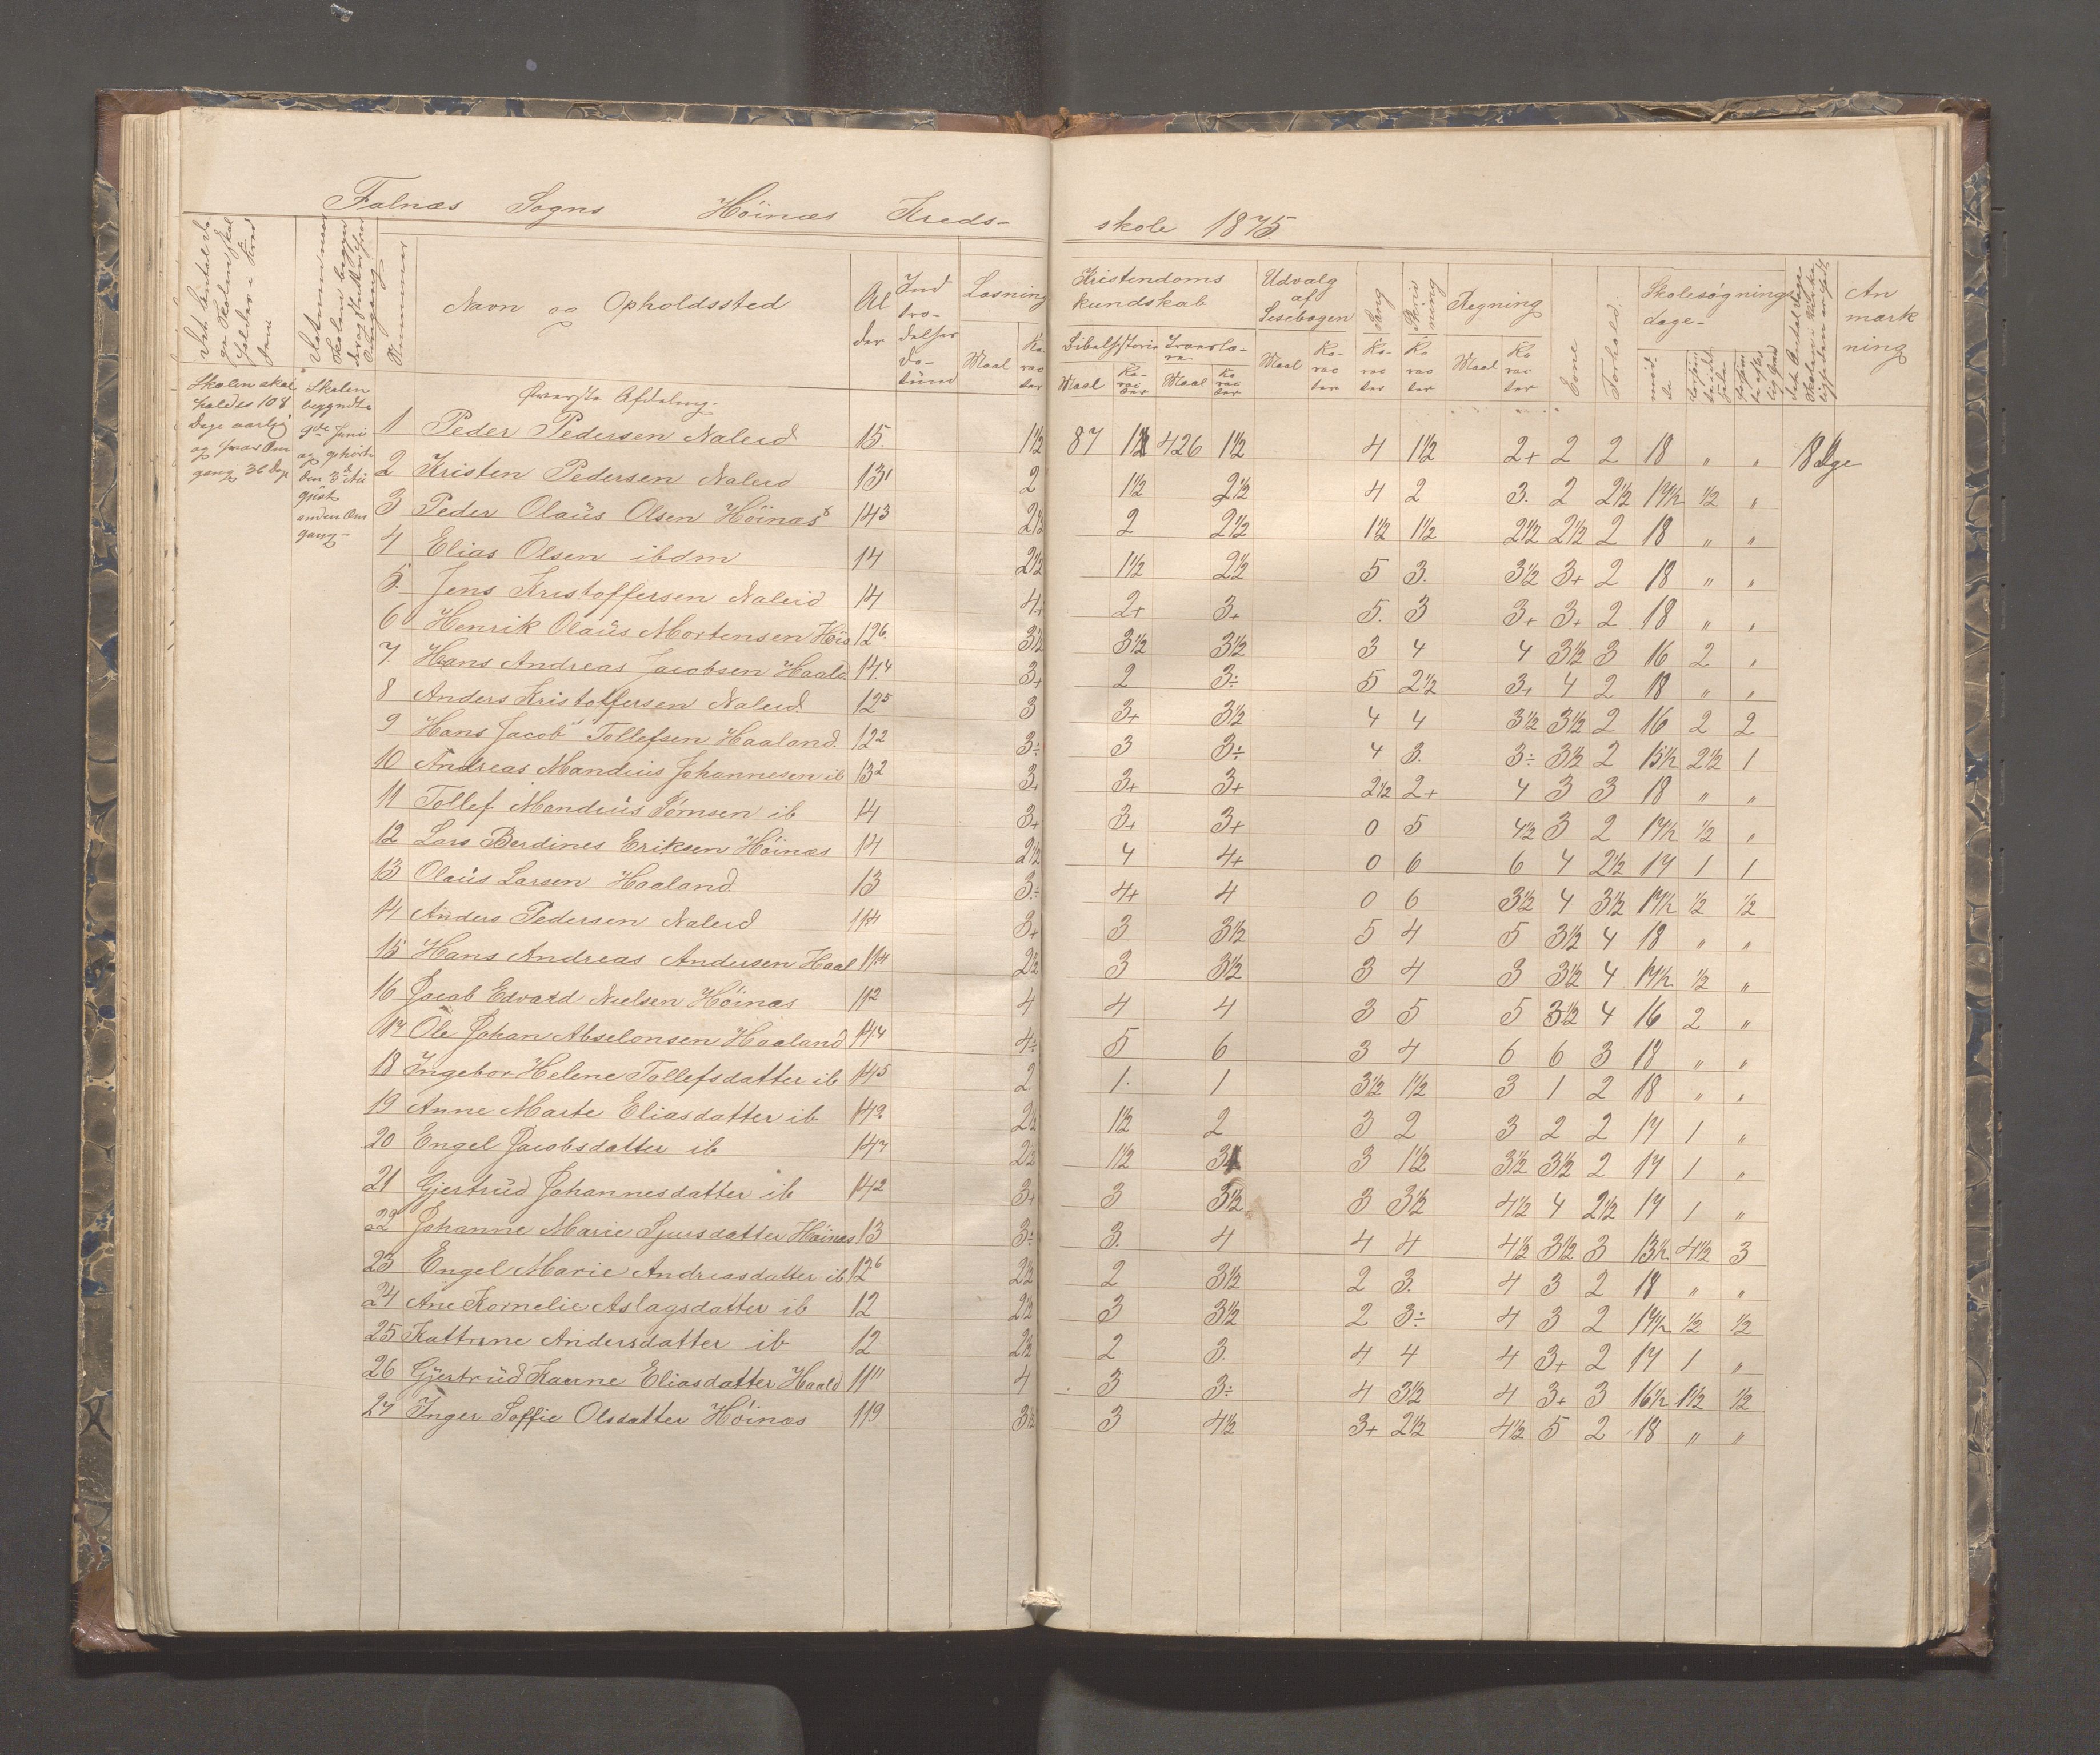 Falnæs Sogns Höinæs Kreds-
skole 1875.
Det Antal Dage Skolen skal holdes i Kredsen
Datum naar Skolen begynder og slutter hver Omgang
Nummer
Navn og Opholdssted
Alder
Introdelses datum
Læsning
Maal
Karacter
Kristendoms kundskab
Bibelhistorie
Maal
Karacter
Troeslære
Maal
Karacter
Udvalg af Læsebogen
Maal
Karacter
Sang
Karacter
Skrivning
Karacter
Regning
Maal
Karacter
Evne
Forhold.
Skolesøgning dage-
mødte
Det Antal Dage Skolen i Virkeligheden er holdt
Anmærkning
Skolen skal
holdes 108
Dage aarlig
og hver Om
gang 36 Dage
Skolen
begyndte
9de Juni
og ophørte
den 3d Au
gust
anden Om
gang-
Øverste Afdeling.
1 Peder Pedersen Naleid 15. 1½ 87 1½ 426 1½ 4 1½ 2+ 2 2 18 " " 18 Dge
2 Kristen Pedersen Naleid 13 1 2 1½ 2½ 4 2 3. 2 2½ 17½ ½ "
3 Peder Olaüs Olsen Höinæs 14 3 2½ 2 2½ 1½ 1½ 2½ 2½ 2 18 " "
4 Elias Olsen ibdm 14 2½ 1½ 2½ 5 3. 3½ 3+ 2 18 " "
5. Jens Kristoffersen Naleid 14 4+ 2+ 3+ 5. 3 3+ 3+ 2 18 " "
6 Henrik Olaüs Mortensen Höi 12 6. 3½ 3½ 3½ 3 4 4 3½ 3 16 2 "
7. Hans Andreas Jacobsen Haald 14.4 3+ 2 3÷ 5 2½ 3+ 4 2 18 " "
8 Anders Kristoffersen Naleid. 12 5 3 3+ 3½ 4 4 3½ 3½ 2 16 2 2
9 Hans Jacob Tollefsen Haaland. 12 2 3÷ 3 3÷ 4 3. 3÷ 3½ 2 15½ 2½ 1
10 Andreas Mandius Johannesen ib 13 2 3+ 3+ 3+ 2½ 2+ 4 3 3 18 " "
11 Tollef Mandiüs Tørnsen ib 14 3+ 3+ 3+ 0 5 4½ 3 2 17½ ½ "
12 Lars Berdines Eriksen Höinæs 14 2½ 4 4+ 0 6 6 4 2½ 17 1 1
13 Olaüs Larsen Haaland. 13 3÷ 4+ 4 0 6 3½ 4 3½ 17½ ½ ½
14 Anders Pedersen Naleid 11 4 3+ 3 3½ 5 4 5 3½ 4 18 " "
15 Hans Andreas Andersen Haal 11 4 2½ 3 3½ 3 4 3 3½ 4 17½ ½ "
16 Jacob Edvard Nielsen Höinæs 11 2 4 4 4 3 5 5 3½ 4 16 2 "
17 Ole Johan Abselonsen Haaland 14.4 4÷ 5 6 3 4 6 6 3 18 " "
18 Ingebor Helene Tollefsdatter ib 14 5 2 1. 1 3½ 1½ 3 1 2 18 " "
19 Anne Marte Eliasdatter ib 14 9. 2½ 1½ 2 3 2 3 2 2 17 1 "
20 Engel Jacobsdatter ib 14 7 2½ 1½ 3 3 1½ 3½ 3½ 2 17 1 "
21 Gjertrüd Johannesdatter ib 14 2 3+ 3 3½ 3 3½ 4½ 4 2½ 17 1 "
22 Johanne Marie Sjursdatter Höinæs 13 3÷ 3. 4 4 4 4½ 3½ 3 13½ 4½ 3
23 Engel Marie Andreasdatter ib 12 6 2½ 2 3½ 2 3. 4 3 2 18 " "
24 Ane Kornelie Aslagsdatter ib 12 2½ 3 3½ 2 3÷ 4 3 2 17½ ½ ½
25 Kattrine Andersdatter ib 12 2½ 2 3. 4 4 4 3+ 2 17 1 "
26 Gjertrüd Karine Eliasdatter Haald 11 11 4 3 3÷ 4 3½ 4 3+ 3 16½ 1½ ½
27 Inger Soffie Olsdatter Höinæs 11 9 3½ 3 4½ 3+ 2½ 4½ 5 2 18 " "